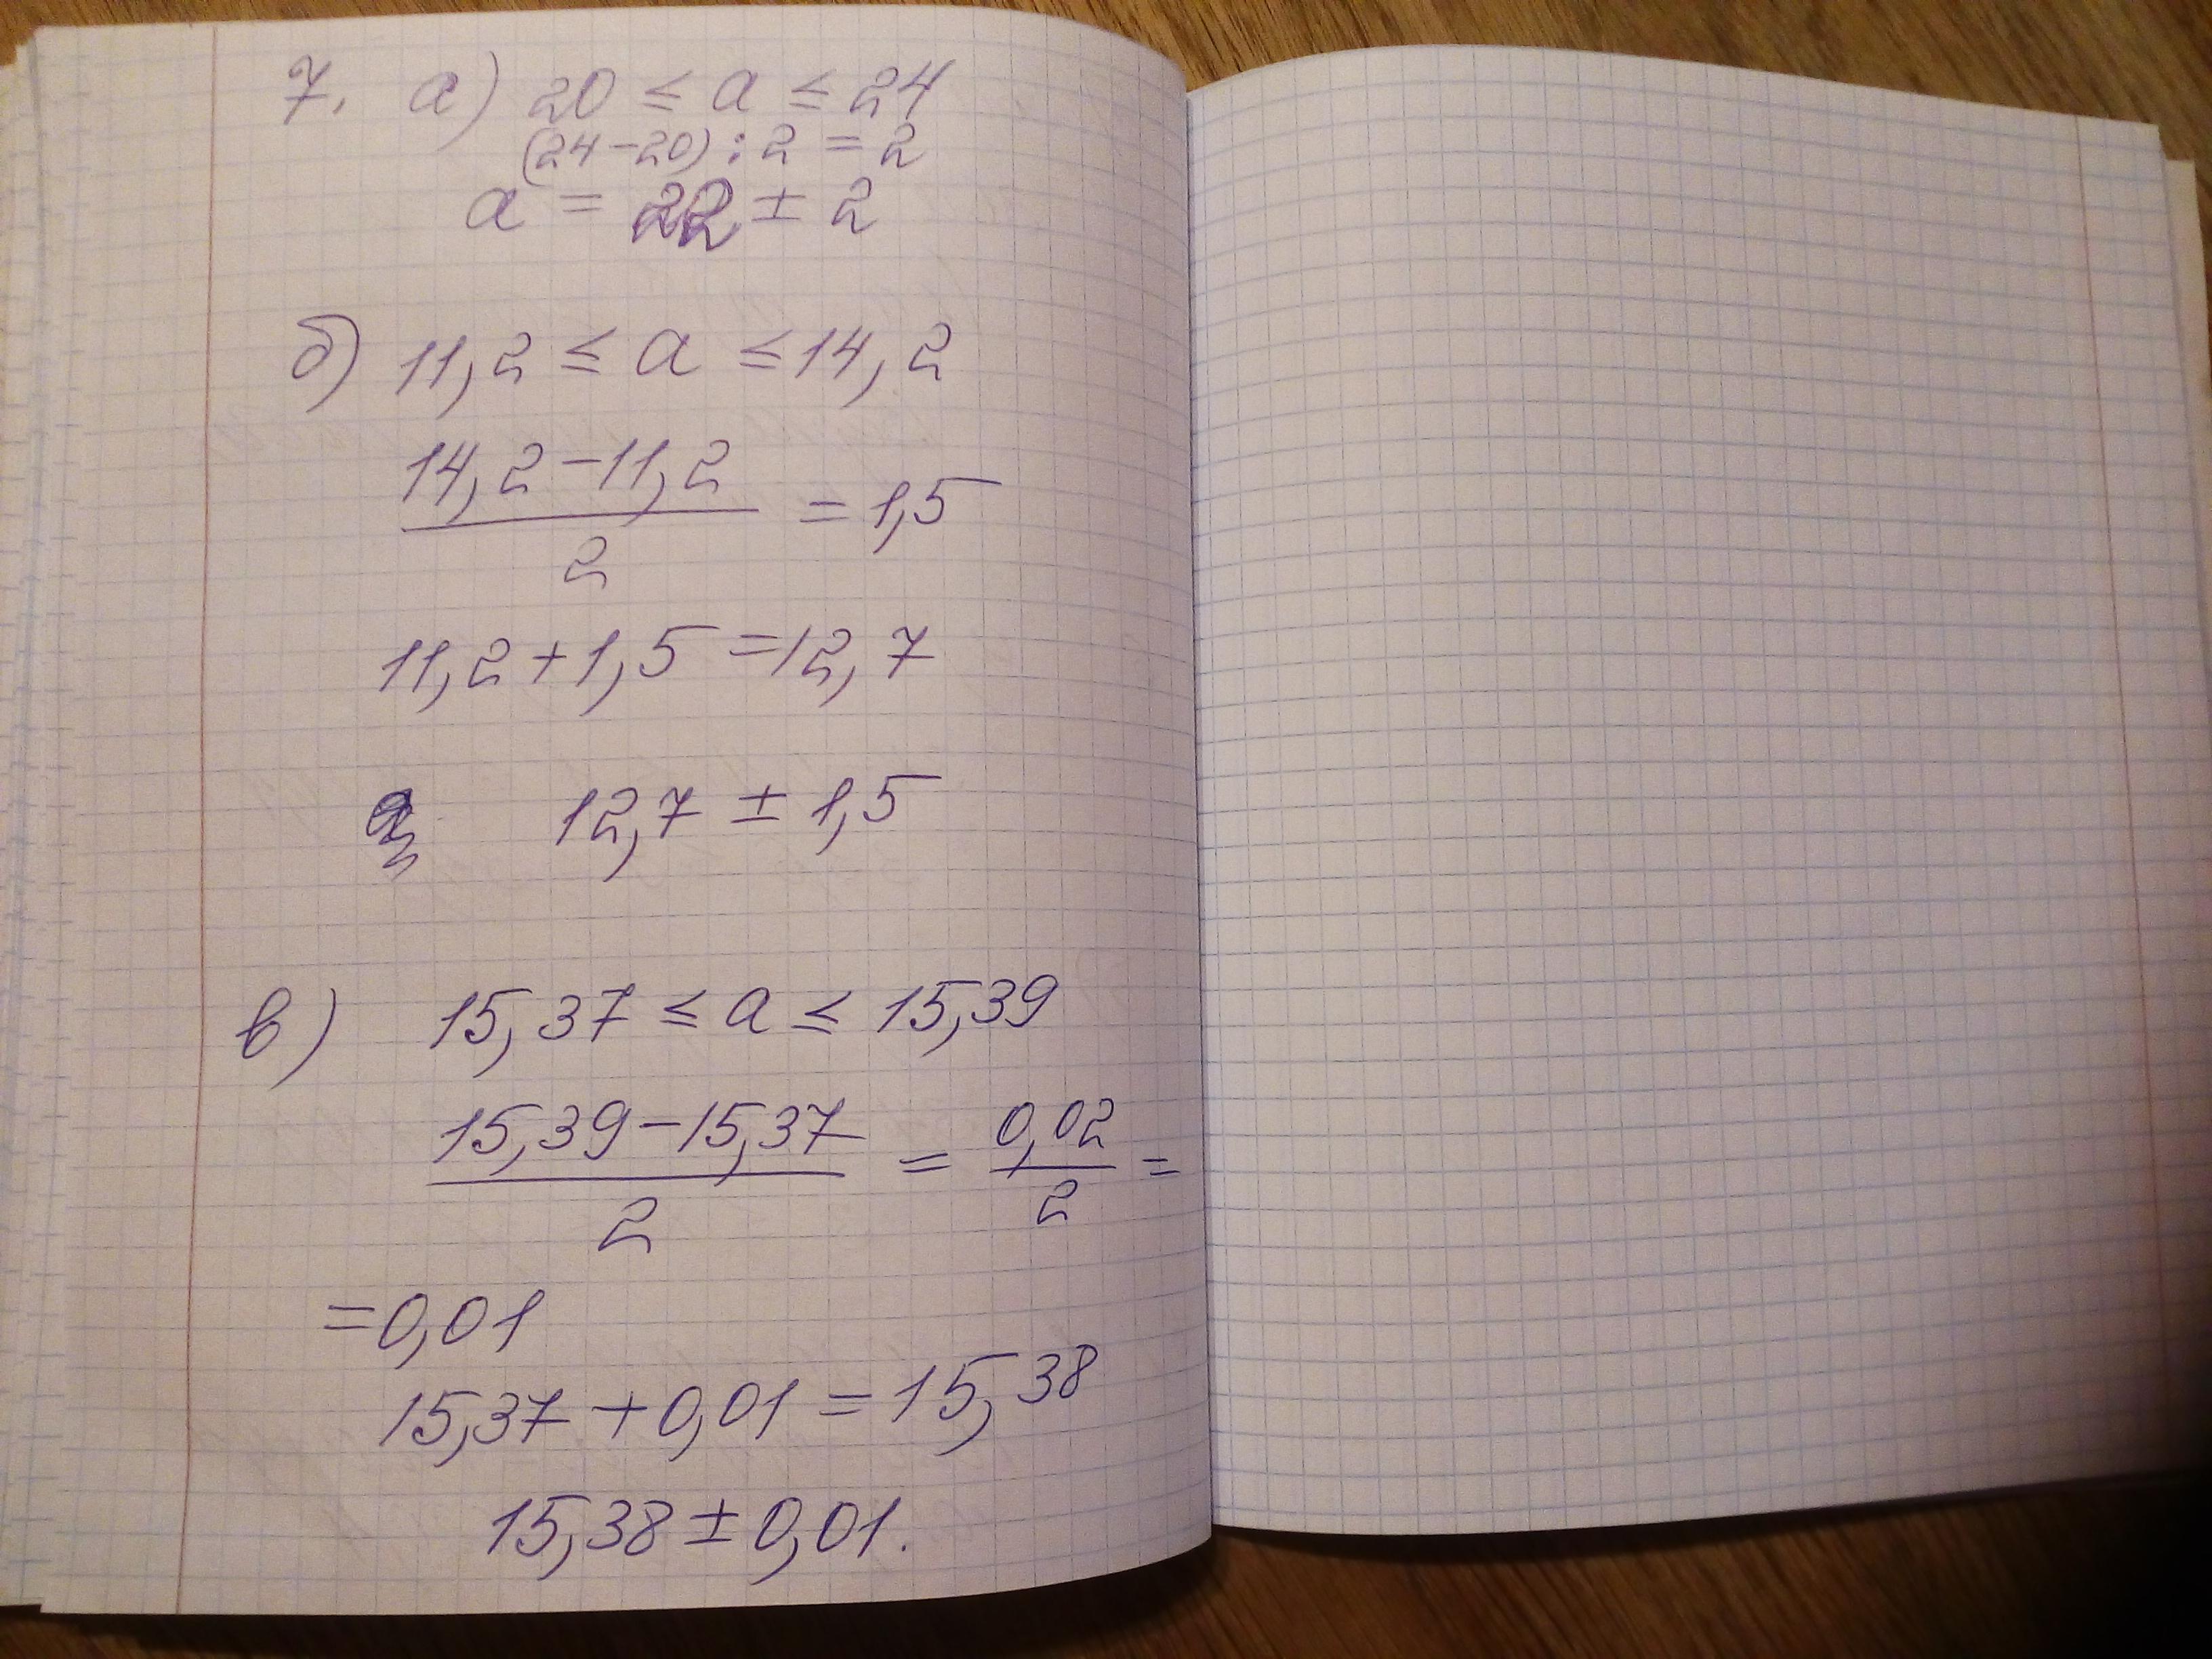 7. а) 20 ≤ a ≤ 24
(24-20) : 2 = 2
a = 22 ± 2
б) 11,2 ≤ a ≤ 14,2
14,2-11,2
= 1,5
2
11,2+1,5=12,7
12,7 ± 1,5
в) 15,37 ≤ a ≤ 15,39
15,39-15,37 = 0,02 =
2 2
=0,01
15,37 +0,01 = 15,38
15,38±0,01.